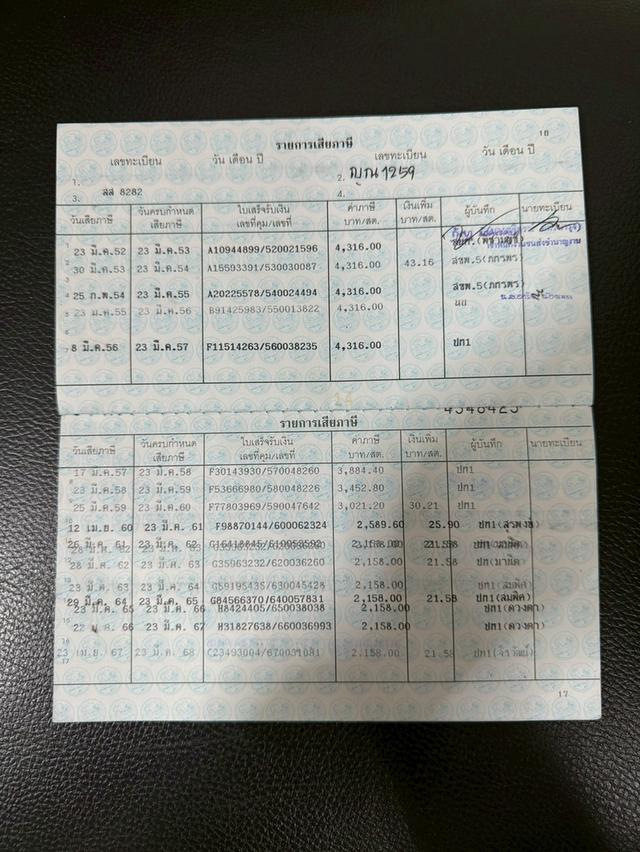 16
รายการเสียภาษี
เลขทะเบียน วัน เดือน ปี เลขทะเบียน วัน เดือน ปี
1. 2. ญณ 1259
3. สส 8282 4.
วันเสียภาษี วันครบกำหนดเสียภาษี ใบเสร็จรับเงิน เลขที่คุม/เลขที่ ค่าภาษี บาท/สต. เงินเพิ่ม บาท/สต. ผู้บันทึก นายทะเบียน
1 23 มี.ค.52 23 มี.ค.53 A10944899/520021596 4,316.00
2 30 มี.ค.53 23 มี.ค.54 A15593391/530030087 4,316.00 43.16 สชพ.5(ภกรพร)
4 25 ก.พ.54 23 มี.ค.55 A20225578/540024494 4,316.00 สชพ.5(ภกรพร)
5 23 มี.ค.55 23 มี.ค.56 B91425983/550013822 4,316.00
7 8 มี.ค.56 23 มี.ค.57 F11514263/560038235 4,316.00 ปท1
14
รายการเสียภาษี
วันเสียภาษี วันครบกำหนดเสียภาษี ใบเสร็จรับเงิน เลขที่คุม/เลขที่ ค่าภาษี บาท/สต. เงินเพิ่ม บาท/สต. ผู้บันทึก นายทะเบียน
17 มี.ค.57 23 มี.ค.58 F30143930/570048260 3,884.40 ปท1
23 มี.ค.58 23 มี.ค.59 F53666980/580048226 3,452.80 ปท1
25 มี.ค.59 23 มี.ค.60 F77803969/590047642 3,021.20 30.21 ปท1
12 เม.ย. 60 23 มี.ค. 61 F98870144/600062324 2,589.60 25.90 ปท1(สุรพงษ์)
26 มี.ค. 61 23 มี.ค. 62 2,158.00 21.58
28 มี.ค. 62 23 มี.ค. 63 G35963232/620036260 2,158.00 21.58
23 มี.ค. 63 23 มี.ค. 64 G59195435/630045428 2,158.00 ปท1(สมพิศ)
29 มี.ค. 64 23 มี.ค. 65 G84566370/640057831 2,158.00 21.58 ปท1(สมพิศ)
23 มี.ค. 65 23 มี.ค. 66 H8424405/650038038 2,158.00 ปท1(ดวงตา)
22 มี.ค. 66 23 มี.ค. 67 H31827638/660036993 2,158.00 ปท1(ดวงตา)
23 เม.ย. 67 23 มี.ค. 68 C23493004/670031081 2,158.00 21.58 ปท1(จิรวัฒน์)
17
17